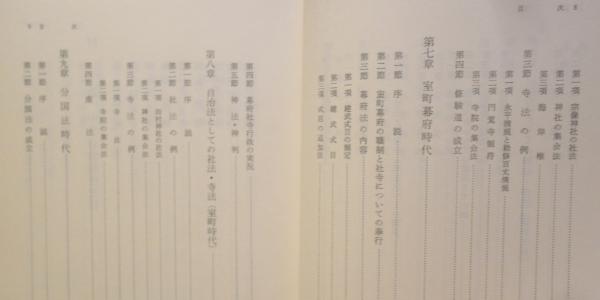 目 次
第一項 宗像神社の社法
第二項 神社の集会法
第三項 海岸権
第三節 寺法の例
第一項 永平清規と総餅百丈清規
第二項 円覚寺制符
第三項 寺院の集会法
第四節 修験道の成立
第七章 室町幕府時代
第一節 序説
第二節 室町幕府の職制と社寺についての奉行
第三節 幕府法の内容
第一項 建武式目の制定
第二項 建武式目
第三項 式目の追加法
目 次
第四節 幕府社寺行政の実況
第五節 神法・神判
第八章 自治法としての社法・寺法(室町時代)
第一節 序説
第二節 社法の例
第一項
第二項 神社の集会法
第三節 寺法の例
第一項 寺法
第二項 寺院の集会法
第四節
第九章 分国法時代
第一節 序説
第二節 分国法の成立